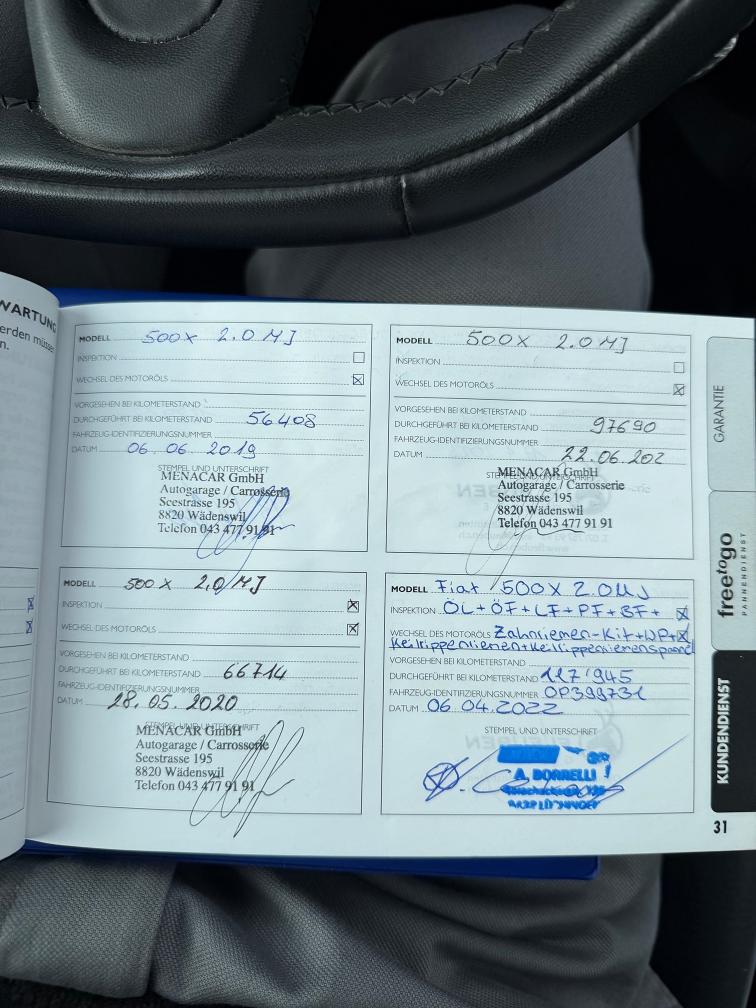 WARTUNG
erden müsse
n.
MODELL 500X 2.0 MJ
INSPEKTION
WECHSEL DES MOTORÖLS
VORGESEHEN BEI KILOMETERSTAND
DURCHGEFÜHRT BEI KILOMETERSTAND 56408
FAHRZEUG-IDENTIFIZIERUNGSNUMMER
DATUM 06.06.2019
STEMPEL UND UNTERSCHRIFT
MENACAR GmbH
Autogarage / Carrosserie
Seestrasse 195
8820 Wädenswil
Telefon 043 477 91 91
MODELL 500X 2.0 MJ
INSPEKTION
WECHSEL DES MOTORÖLS
VORGESEHEN BEI KILOMETERSTAND
DURCHGEFÜHRT BEI KILOMETERSTAND 97690
FAHRZEUG-IDENTIFIZIERUNGSNUMMER
DATUM 22.06.202
STEMPEL UND UNTERSCHRIFT
MENACAR GmbH
Autogarage / Carrosserie
Seestrasse 195
8820 Wädenswil
Telefon 043 477 91 91
MODELL 500X 2.0 MJ
INSPEKTION
WECHSEL DES MOTORÖLS
VORGESEHEN BEI KILOMETERSTAND
DURCHGEFÜHRT BEI KILOMETERSTAND 66714
FAHRZEUG-IDENTIFIZIERUNGSNUMMER
DATUM 28.05.2020
STEMPEL UND UNTERSCHRIFT
MENACAR GmbH
Autogarage / Carrosserie
Seestrasse 195
8820 Wädenswil
Telefon 043 477 91 91
MODELL Fiat 500X 2.0MJ
INSPEKTION ÖL+ÖF+LF+PF+BF+
WECHSEL DES MOTORÖLS Zahnriemen-Kit+WP+
Keilrippenriemen+Keilrippenriemenspann
VORGESEHEN BEI KILOMETERSTAND
DURCHGEFÜHRT BEI KILOMETERSTAND 127'945
FAHRZEUG-IDENTIFIZIERUNGSNUMMER
DATUM 06.04.2022
STEMPEL UND UNTERSCHRIFT
A. BORRELLI
GARANTIE
freetogo
PANNENDIENST
KUNDENDIENST
31